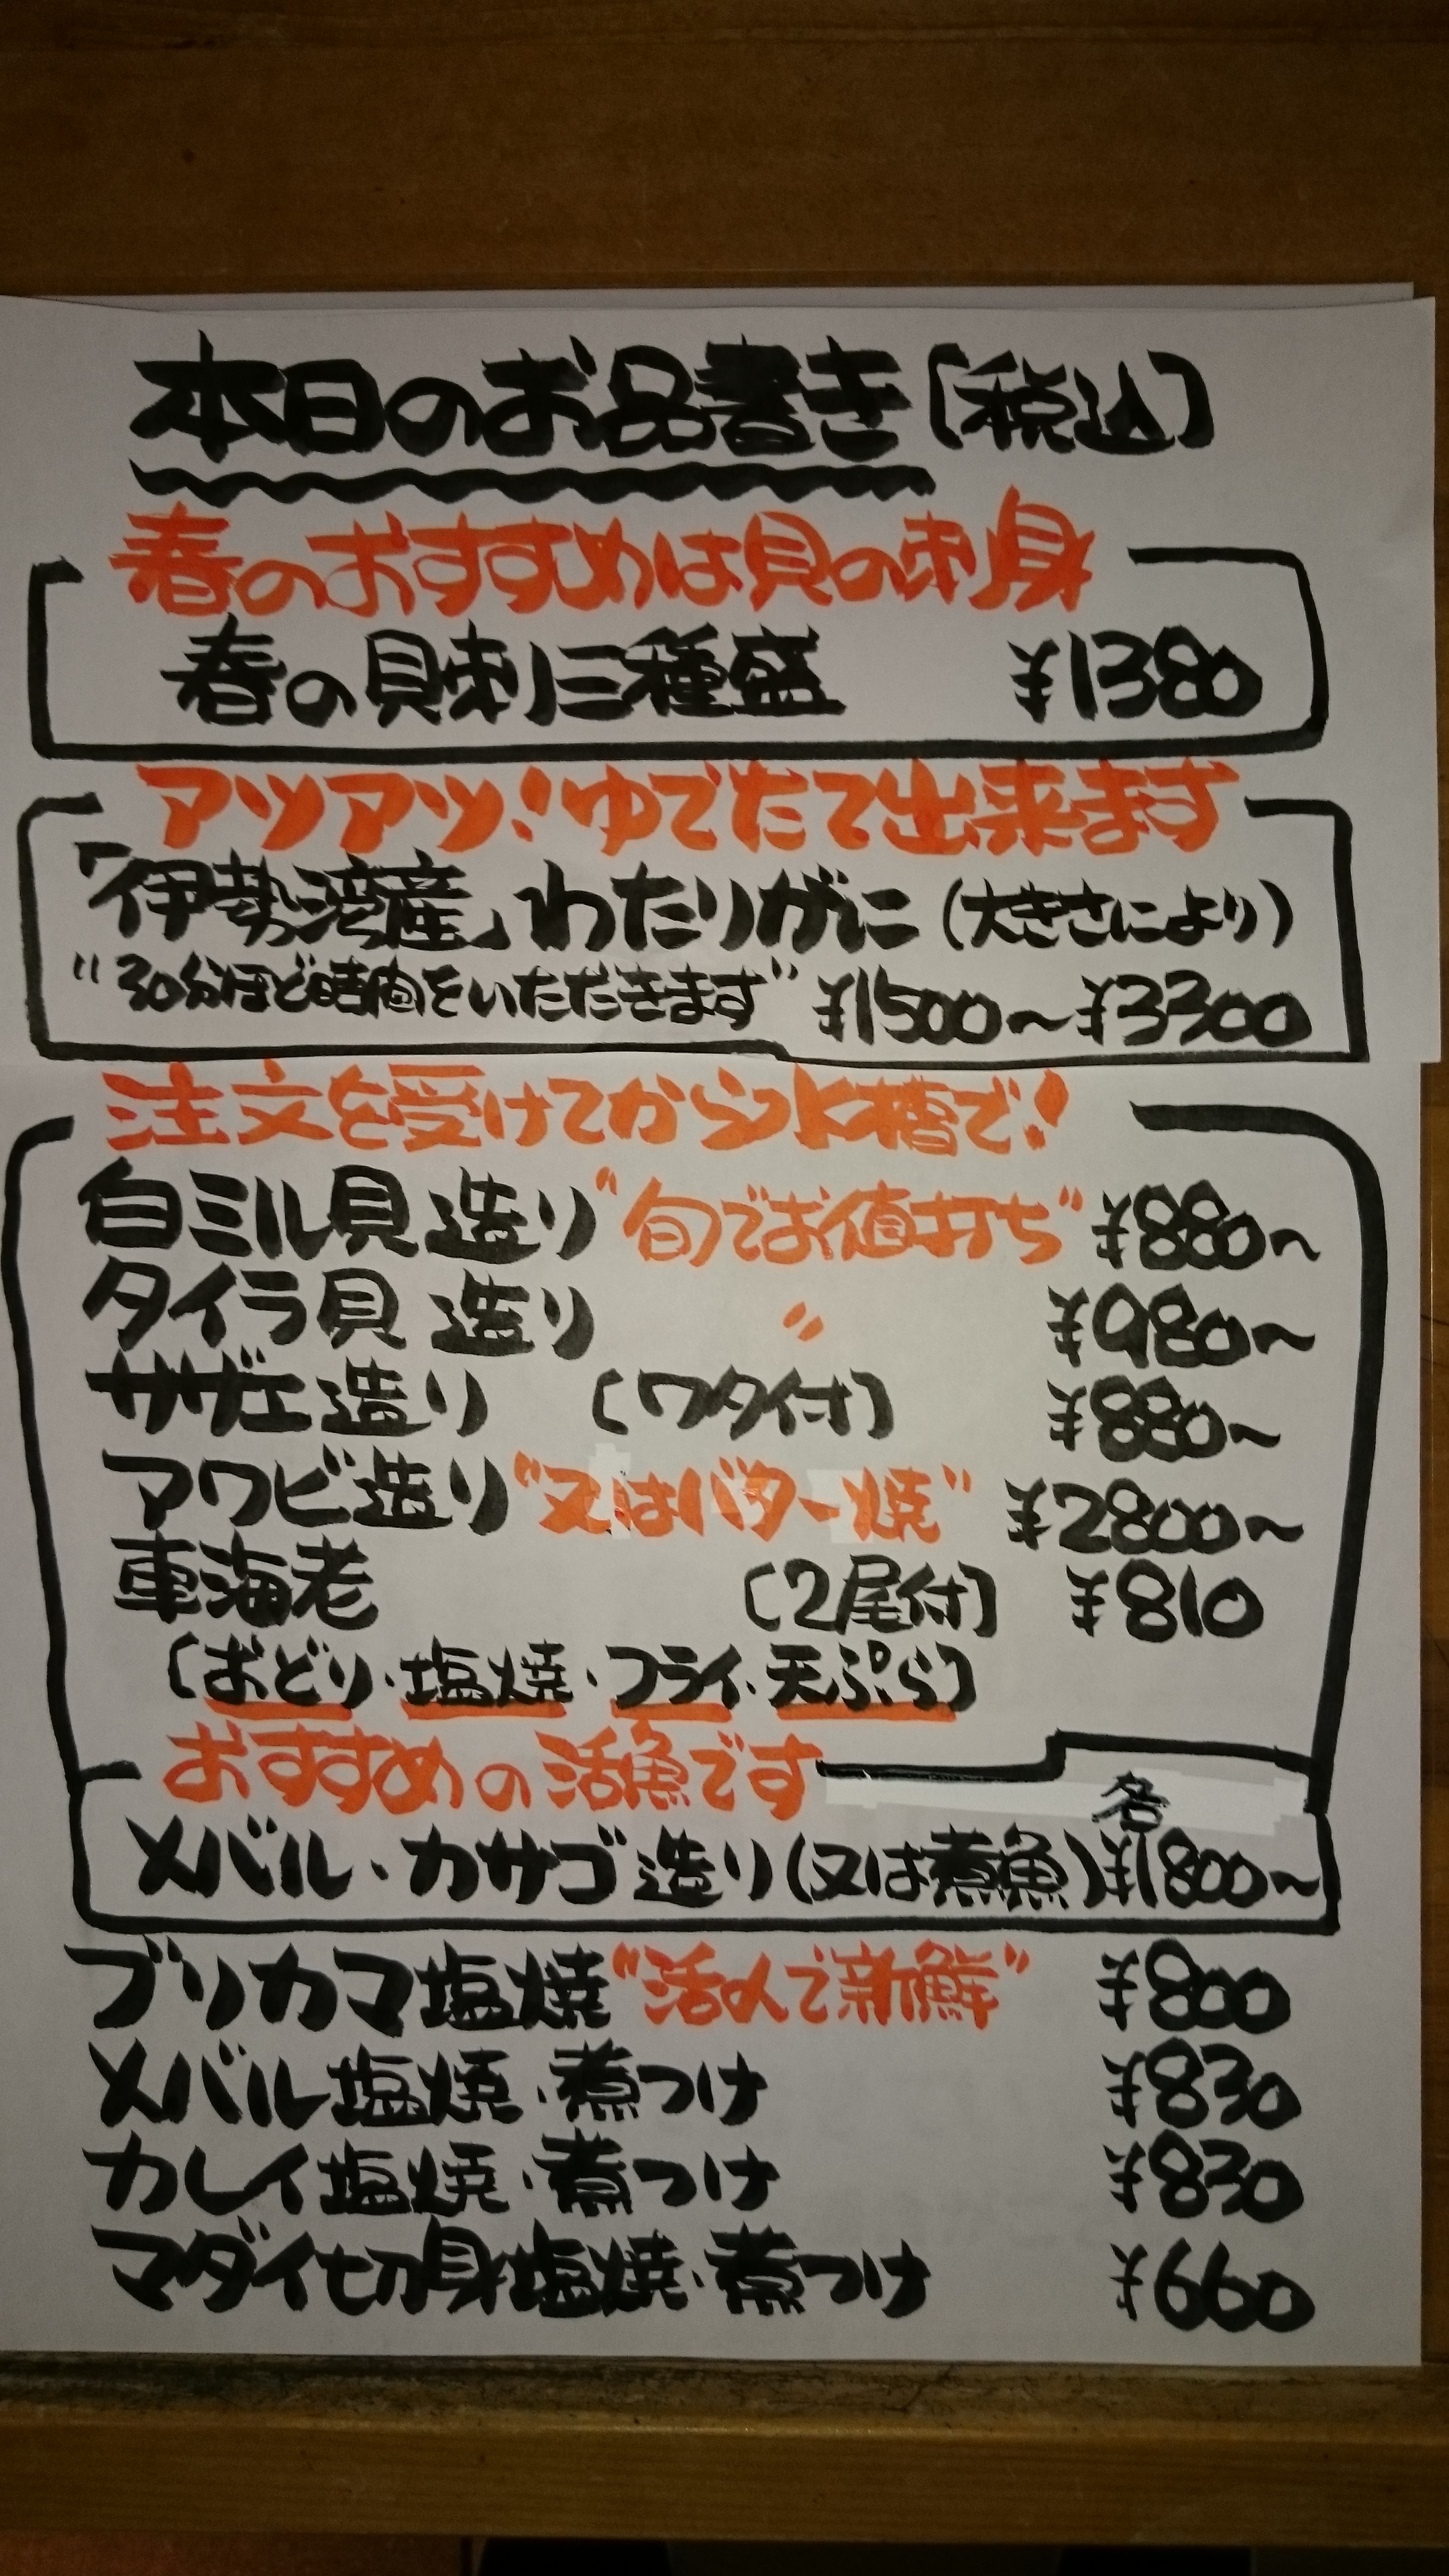 本日のお品書き〔税込〕
春のおすすめは貝の刺身
春の貝刺三種盛 ¥1380
アツアツ!ゆでたて出来ます
「伊勢湾産」わたりがに(大きさにより)
"30分ほど時間をいただきます" ¥1500〜¥3300
注文を受けてから水槽で!
白ミル貝造り "旬でお値打ち" ¥880〜
タイラ貝造り 〃 ¥980〜
サザエ造り 〔ワタ付〕 ¥880〜
アワビ造り "又はバター焼" ¥2800〜
車海老 〔2尾付〕 ¥810
〔おどり・塩焼・フライ・天ぷら〕
おすすめの活魚です
各
メバル・カサゴ造り(又は煮魚) ¥1800〜
ブリカマ塩焼 "活〆で新鮮" ¥800
メバル塩焼・煮つけ ¥830
カレイ塩焼・煮つけ ¥830
マダイ切身塩焼・煮つけ ¥660